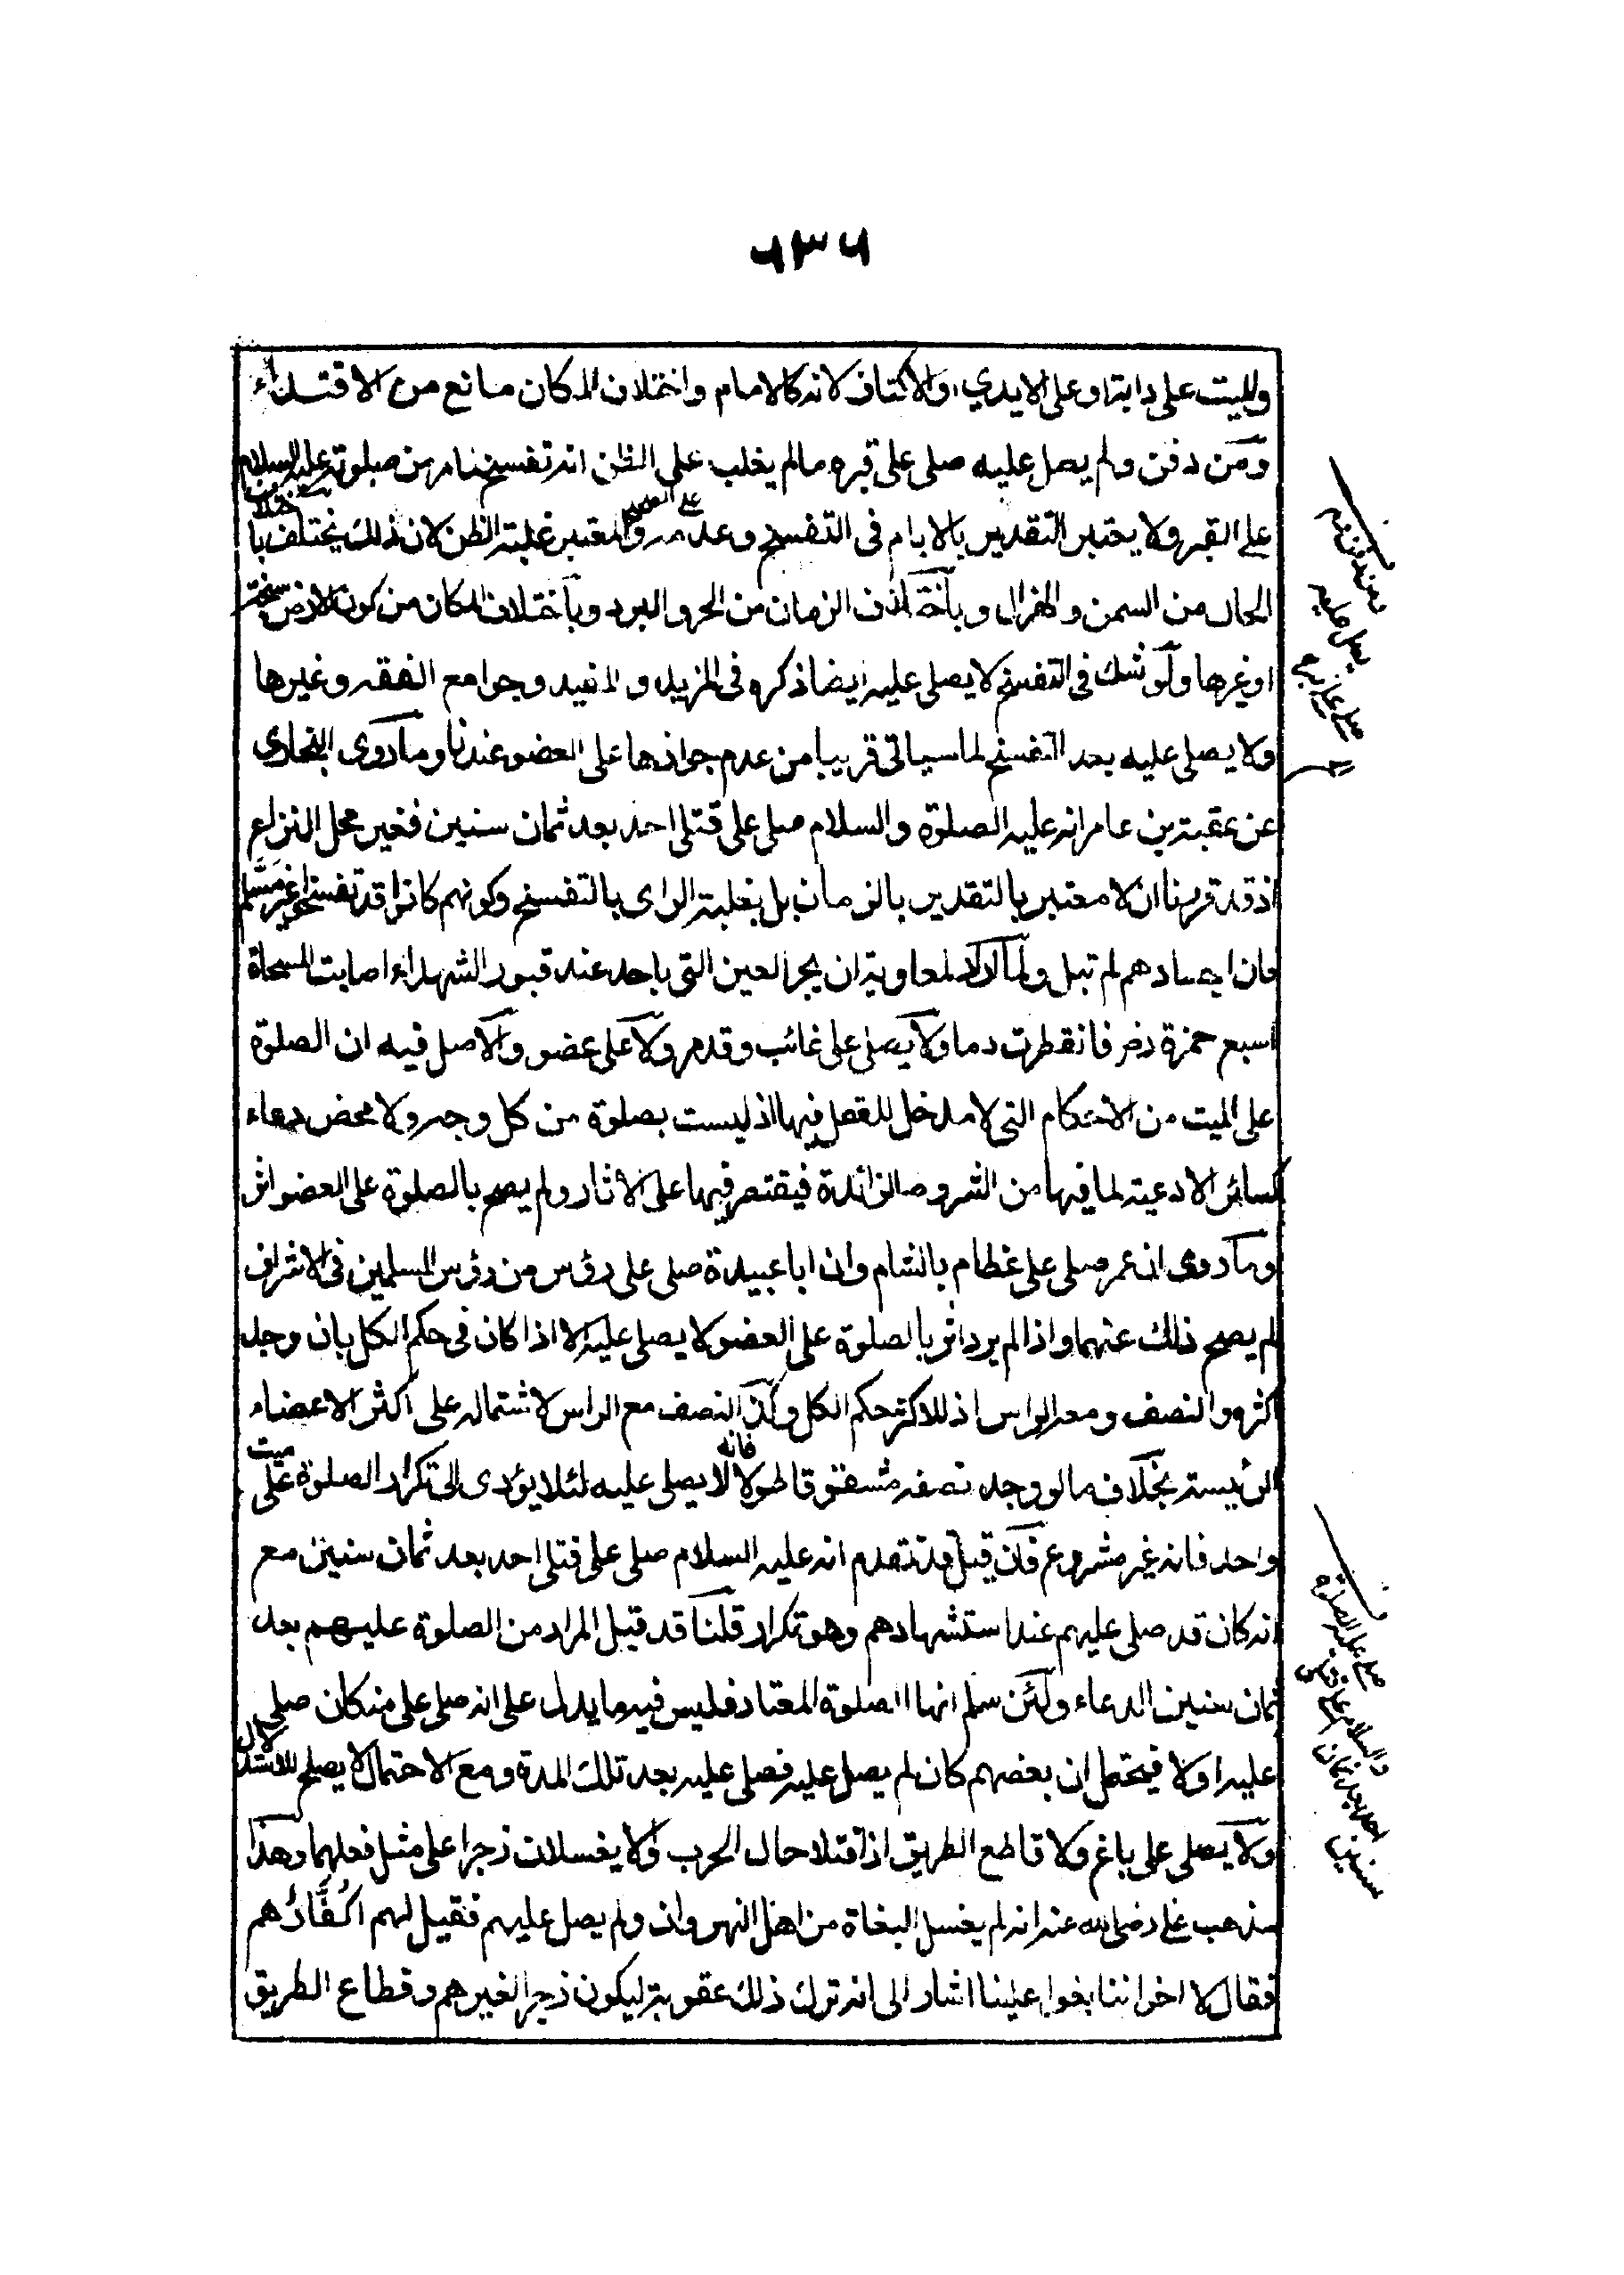 ٦٣٦
والميت على دابته او على الايدي او الاكتاف لانه كالامام واختلاف المكان مانع من الاقتداء
ومن دفن ولم يصل عليه صلى على قبره مالم يغلب على الظن انه تفسخ لما مر من صلوته عليه السلام
على القبر ولا يعتبر التقدير بالايام فى التفسخ وعدمه والمعتبر غلبة الظن لان ذلك يختلف باختلاف
على الصحيح
الحال من السمن والهزال وباختلاف الزمان من الحر والبرد وباختلاف المكان من كون الارض سبخة
او غيرها ولو شك فى التفسخ لا يصلى عليه ايضا ذكره فى المزيد والمفيد وجوامع الفقه وغيرها
ولا يصلى عليه بعد التفسخ لما سياتى قريبا من عدم جوازها على العضو عندنا وما روى البخارى
عن عقبة بن عامر انه عليه الصلوة والسلام صلى على قتلى احد بعد ثمان سنين فغير محل النزاع
اذ قد قررنا ان لا معتبر بالتقدير بالزمان بل بغلبة الراى بالتفسخ وكونهم كانوا قد تفسخوا غير مسلم
فان اجسادهم لم تبل ولما اراد معاوية ان يجر العين التى باحد عند قبور الشهداء اصابت المسحاة
اسبع حمزة رضه فانقطرت دما ولا يصلى على غائب وقد مر ولا على عضو والاصل فيه ان الصلوة
على الميت من الاحكام التى لا مدخل للعقل فيها اذ ليست بصلوة من كل وجه ولا محض دعاء
كسائر الادعية لما فيها من الشروط الزائدة فيقتصر فيها على الاثار ولم يصح بالصلوة على العضو اثر
وما روى ان عمر صلى على عظام بالشام وان ابا عبيدة صلى على رؤس من رؤس المسلمين فى الاشراف
لم يصح ذلك عنهما واذا لم يرد اثر بالصلوة على العضو لا يصلى عليه الا اذا كان فى حكم الكل بان وجد
اكثره والنصف ومعه الراس اذ للاكثر حكم الكل وكذا النصف مع الراس لاشتماله على اكثر الاعضاء
الرئيسة بخلاف ما لو وجد نصفه مشقوقا طولا فانه لا يصلى عليه لئلا يؤدى الى تكرار الصلوة على ميت
واحد فانه غير مشروع فان قيل قد تقدم انه عليه السلام صلى على قتلى احد بعد ثمان سنين مع
انه كان قد صلى عليهم عند استشهادهم وهو تكرار قلنا قد قيل المراد من الصلوة عليهم بعد
ثمان سنين الدعاء ولئن سلم انها الصلوة المعتاد فليس فيه ما يدل على انه صلى على من كان صلى
عليه اولا فيحتمل ان بعضهم كان لم يصل عليه فصلى عليه بعد تلك المدة ومع الاحتمال لا يصلح للاستدلال
ولا يصلى على باغ ولا قاطع الطريق اذا قتلا حال الحرب ولا يغسلان زجرا على مثل فعلهما وهذا
مذهب على رضى الله عنه انه لم يغسل البغاة من اهل النهروان ولم يصل عليهم فقيل لهم اكفار هم
فقال لا اخواننا بغوا علينا اشار الى انه ترك ذلك عقوبة ليكون زجرا لغيرهم وقطاع الطريق
يصل عليه
صلى على قبره
صلى عليه الصلوة
والسلام على قتلى
احد بعد ثمان
سنين